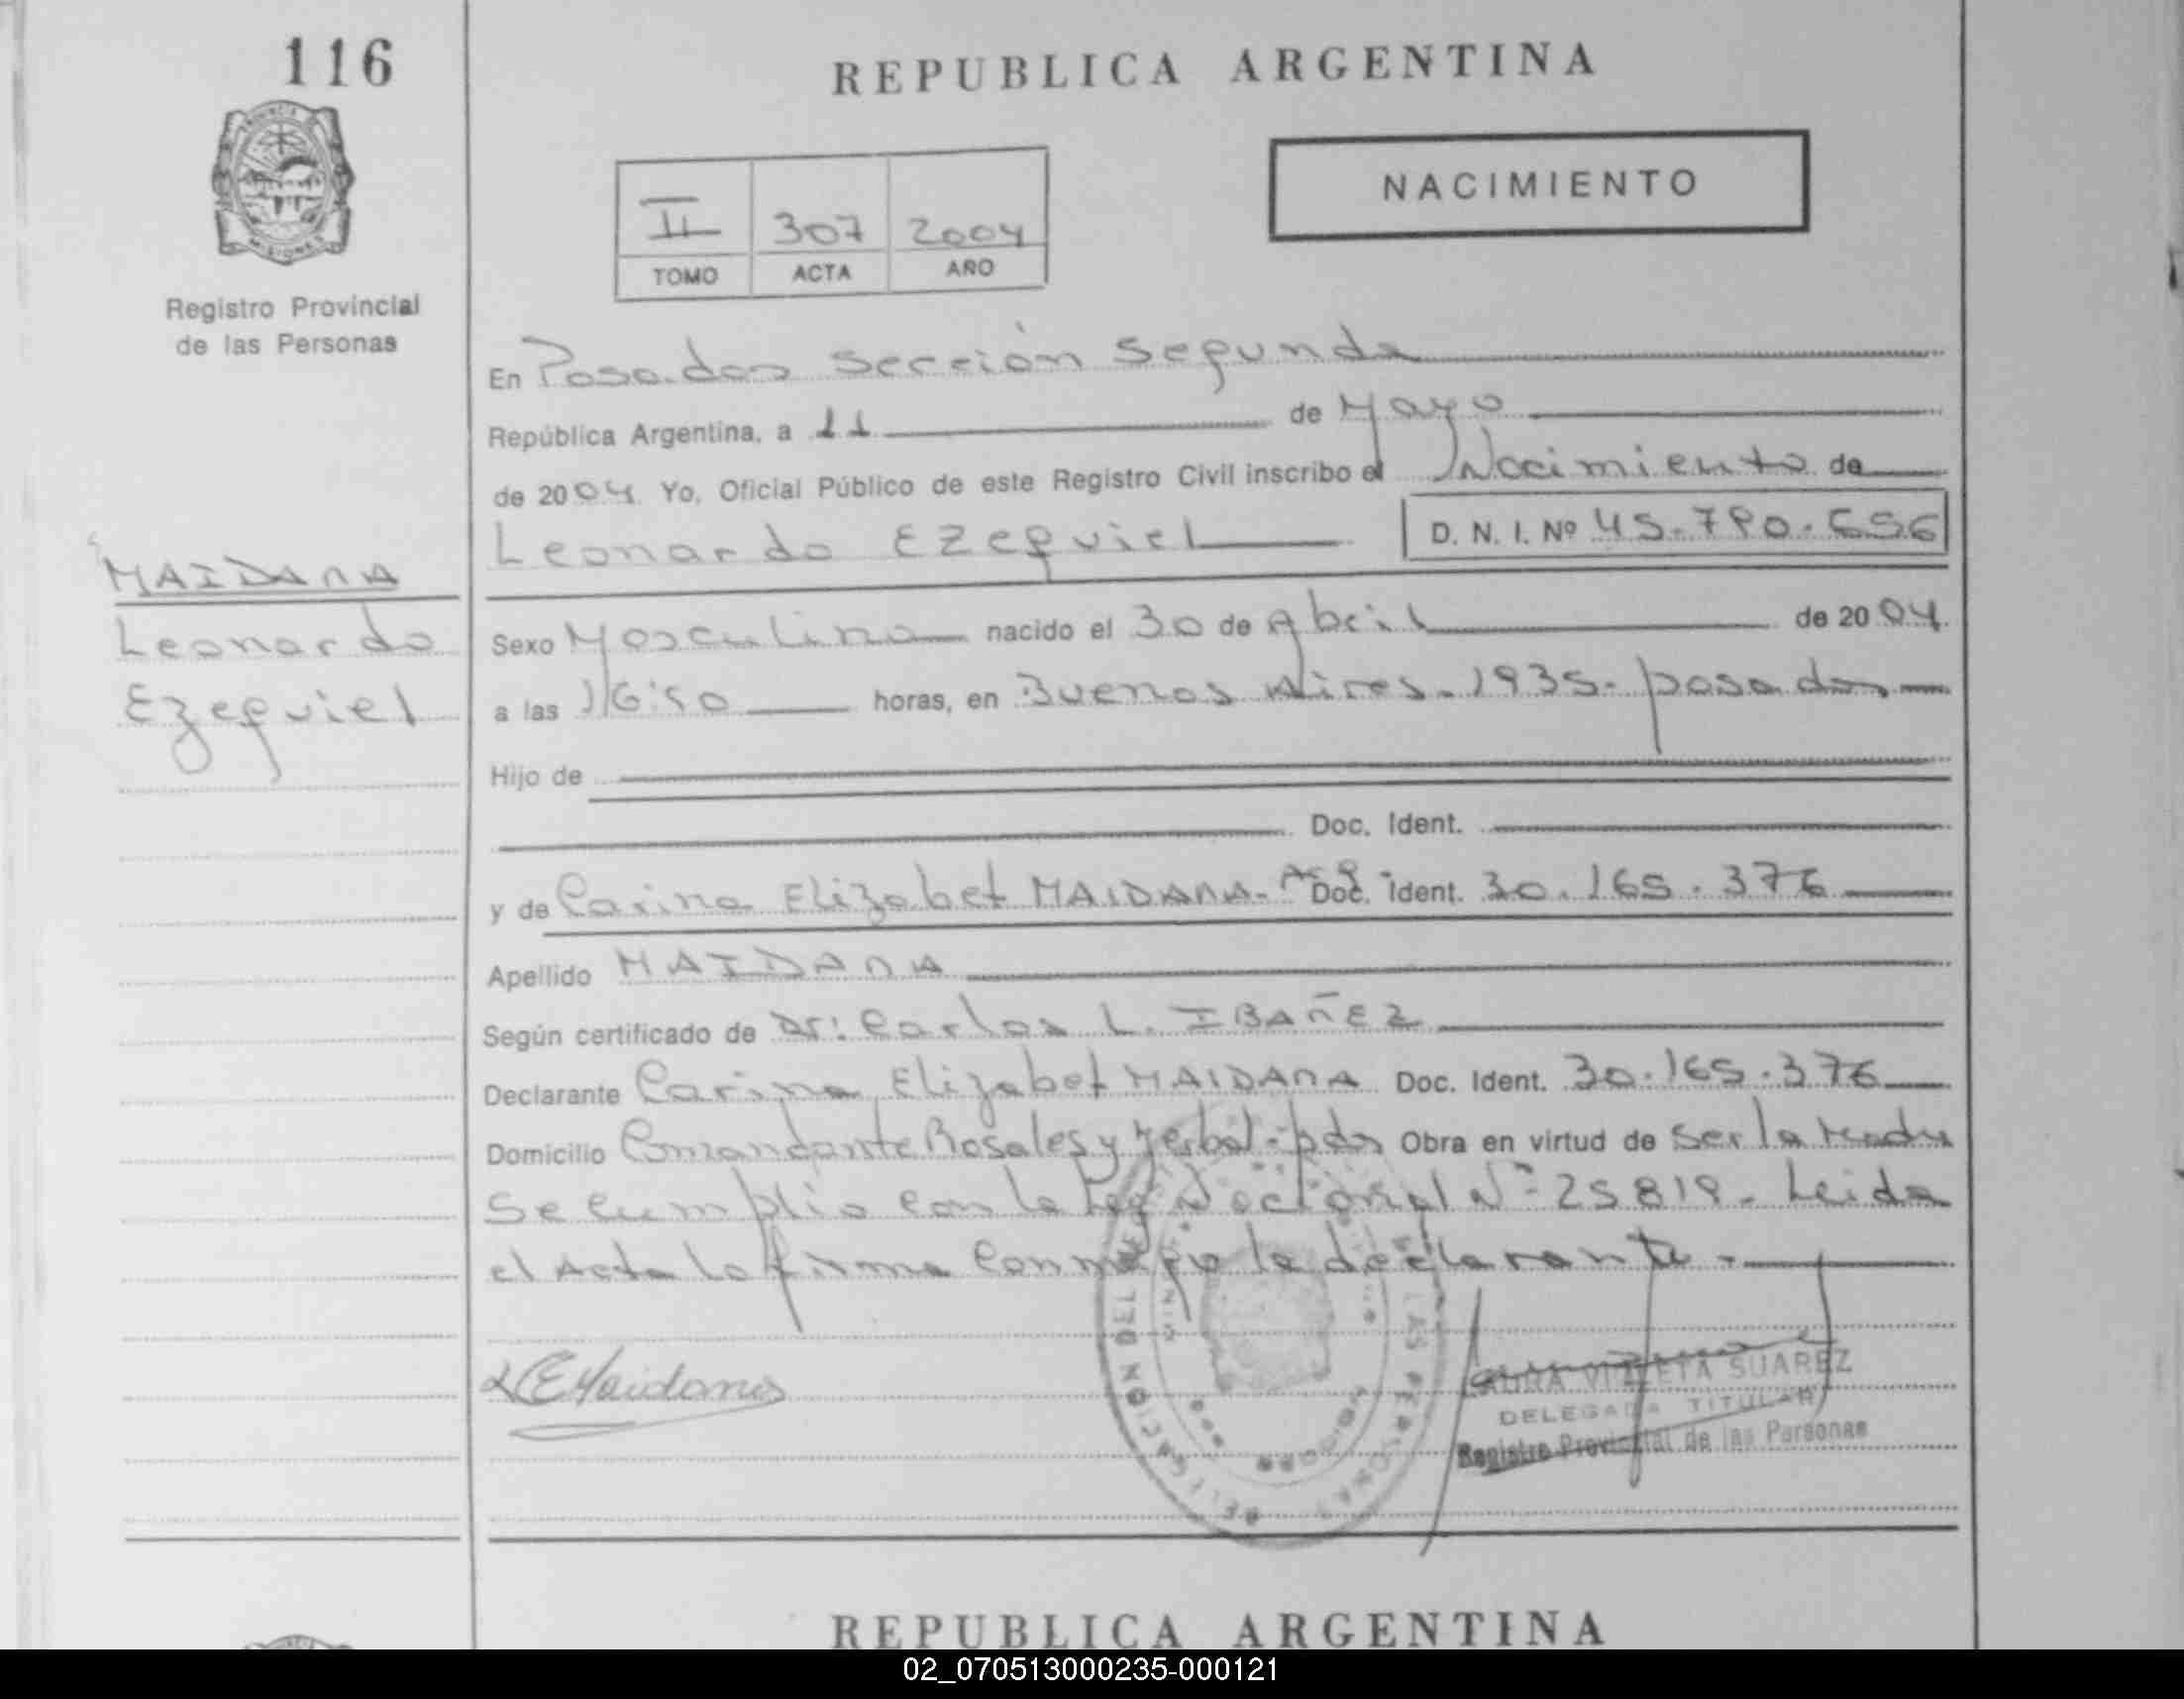 116
REPUBLICA ARGENTINA
NACIMIENTO
II 307 2004
TOMO ACTA AÑO
MISIONES
Registro Provincial
de las Personas
En Posadas Sección Segunda
República Argentina, a 11 de Mayo
de 2004. Yo, Oficial Público de este Registro Civil inscribo el Nacimiento de
Leonardo Ezequiel D. N. I. Nº 45.790.656
MAIDANA
Leonardo
Ezequiel
Sexo Masculino nacido el 30 de Abril de 2004.
a las 16:50 horas, en Buenos Aires. 1935. posadas
Hijo de
Doc. Ident.
y de Carina Elizabet MAIDANA- Arg. Doc. Ident. 30.165.376
Apellido MAIDANA
Según certificado de Dr: Carlos L. IBAÑEZ
Declarante Carina Elizabet MAIDANA Doc. Ident. 30.165.376
Domicilio Comandante Rosales y Yerbal - pdas Obra en virtud de Ser la Madre
Se cumplio con la Ley Nacional Nº 25819 - Leida
el Acta la firma Conmigo la declarante -
CEMaidana
VIOLETA SUAREZ
DELEGADA TITULAR
Registro Provincial de las Personas
REPUBLICA ARGENTINA
02_070513000235-000121